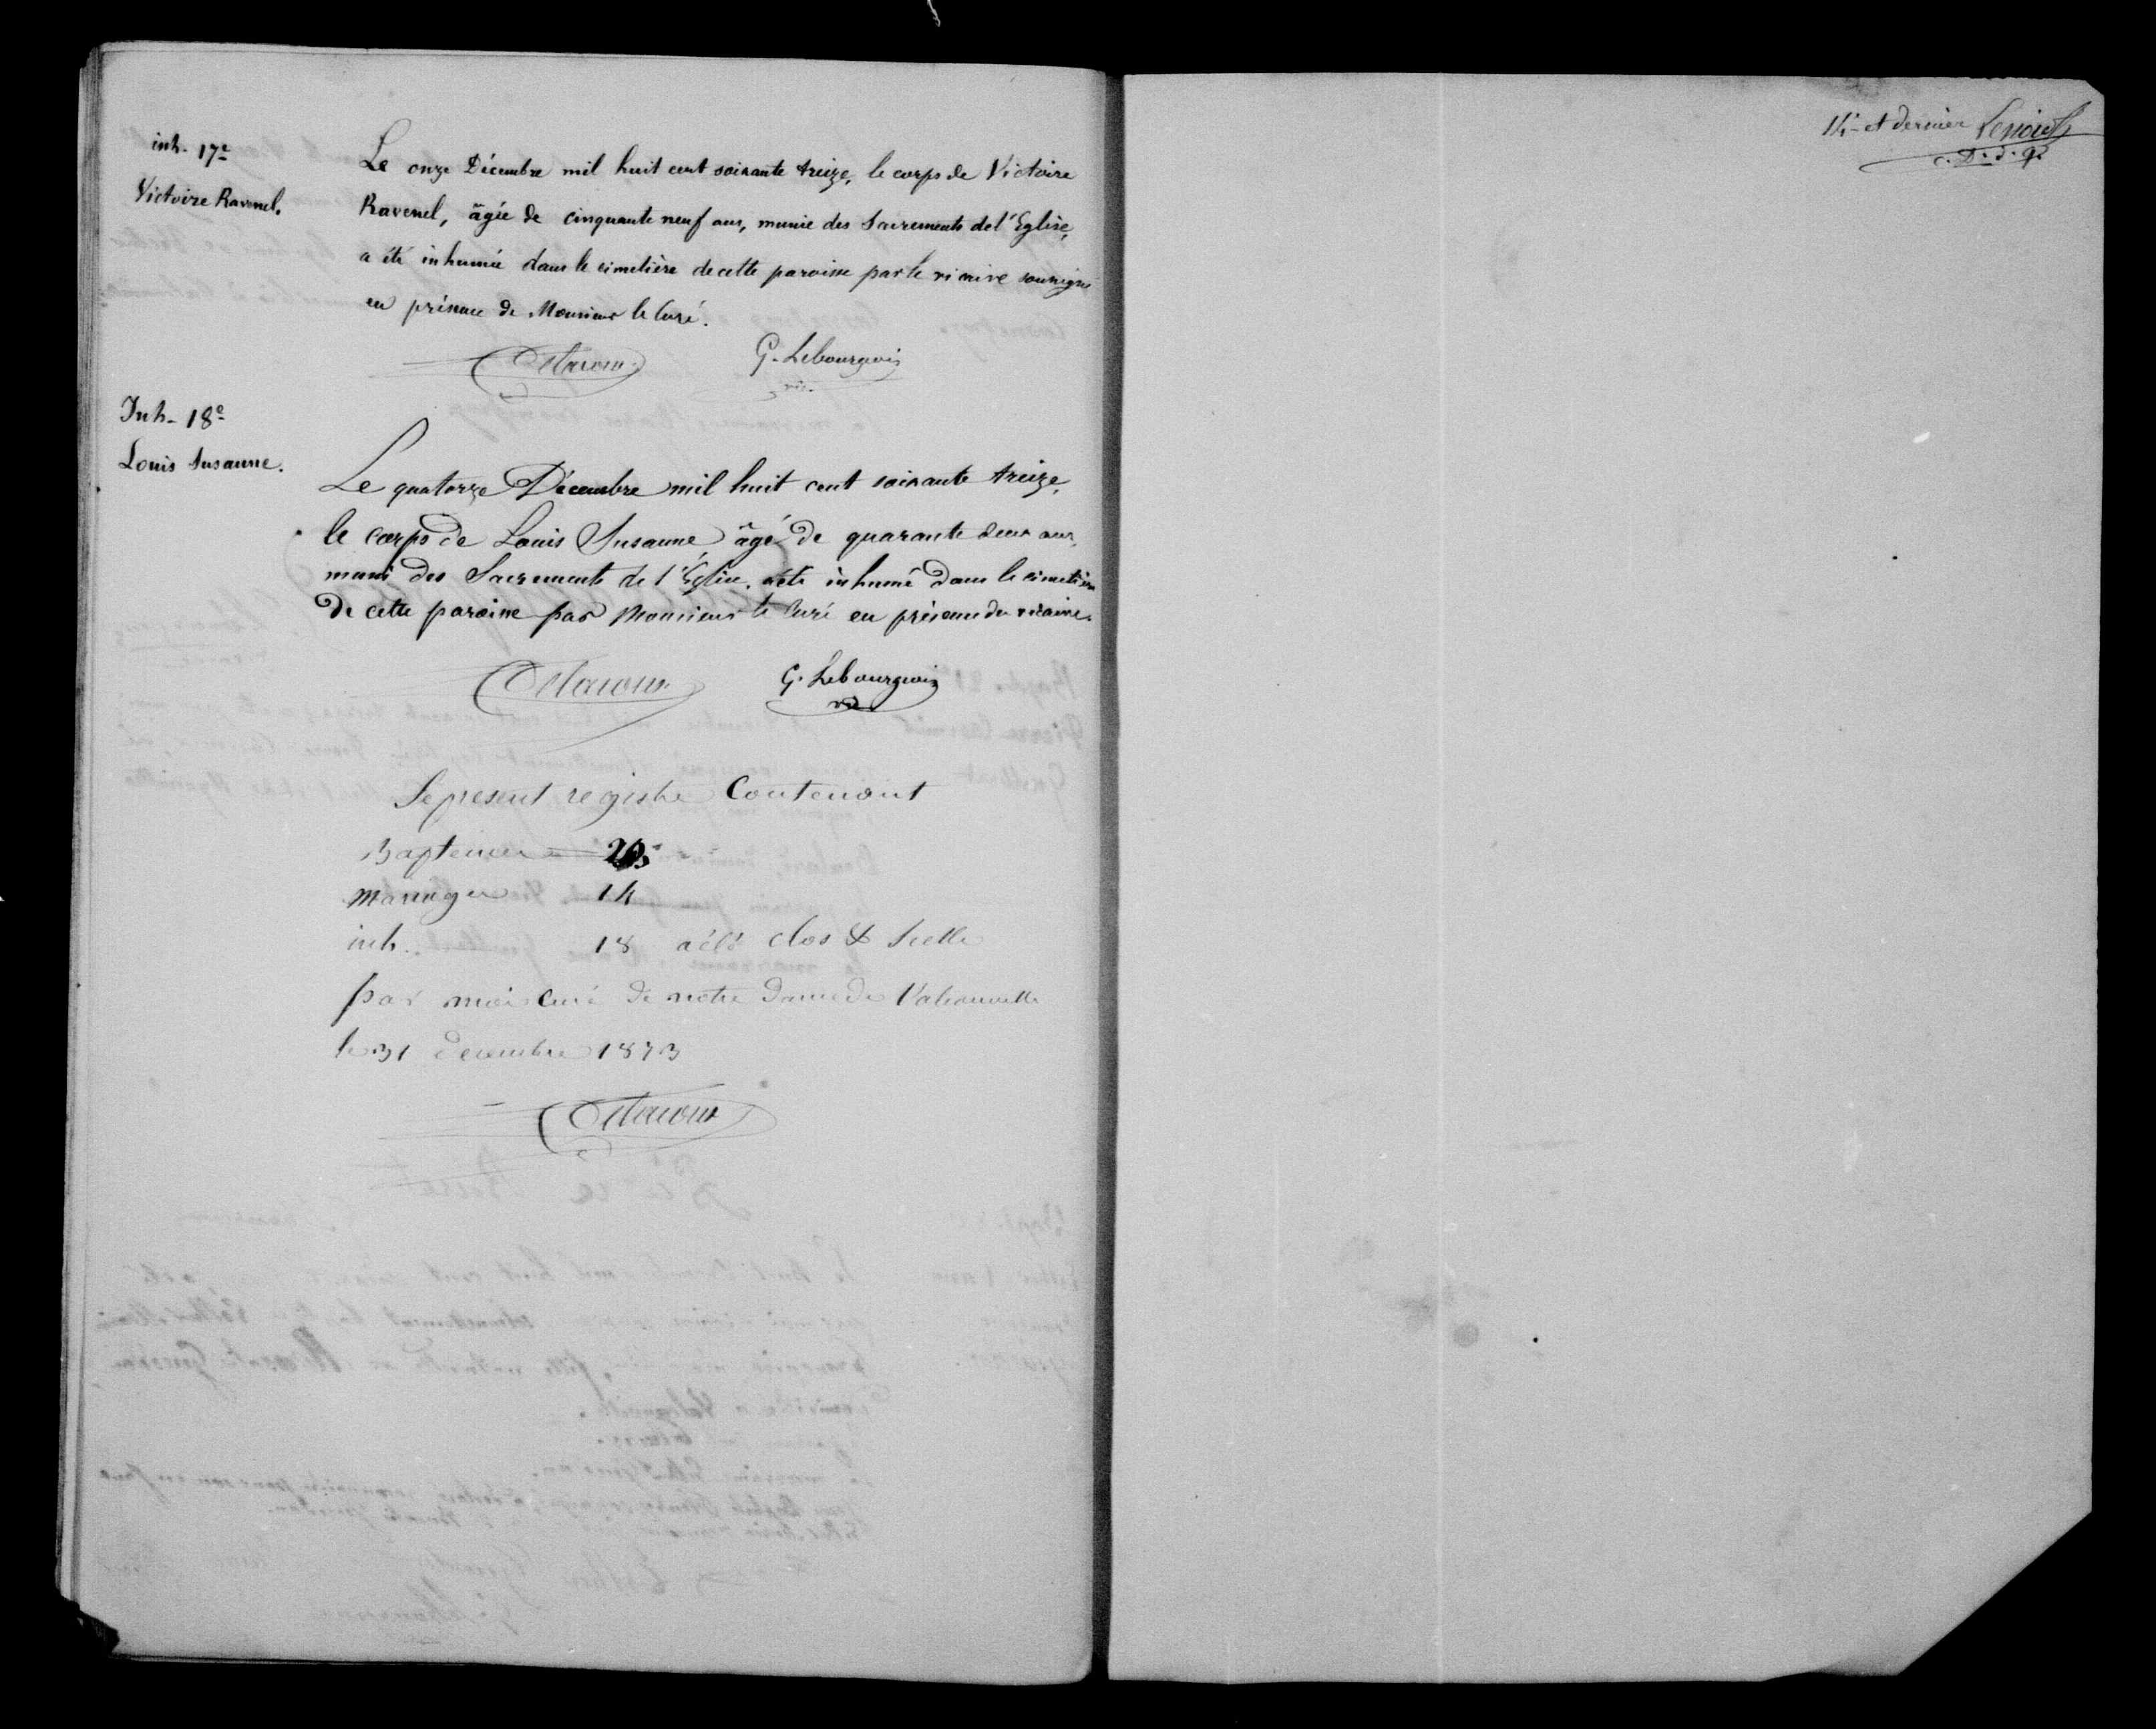 inh. 17e
Victoire Ravenel.
Le onze Décembre mil huit cent soixante treize, le corps de Victoire
Ravenel, âgée de cinquante neuf ans, munie des Sacrements de l'Eglise,
a été inhumée dans le cimetière de cette paroisse par le vicaire soussigné
en présence de Monsieur le Curé.
G. Lebourgeois
vic.
Inh. 18e
Louis Susanne.
Le quatorze Décembre mil huit cent soixante treize,
le corps de Louis Susanne, âgé de quarante deux ans,
muni des Sacrements de l'Eglise, a été inhumé dans le cimetière
de cette paroisse par Monsieur le Curé en présence du vicaire.
G. Lebourgeois
vic
Le present registre Contenant
Baptemes
Mariages 14
inh. 18 a été clos & scellé
par moi curé de notre Dame de
le 31 decembre 1873
14e et dernier